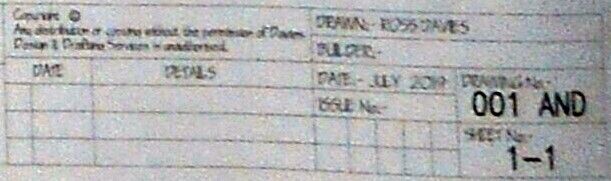 Copyright ©
Any distribution or copying without the permission of Davies
Design & Drafting Services is unauthorised.
DRAWN:- ROSS DAVIES
BUILDER:-
DATE DETAILS
DATE:- JULY 2019
ISSUE No:-
DRAWING No:-
001 AND
SHEET No:-
1-1